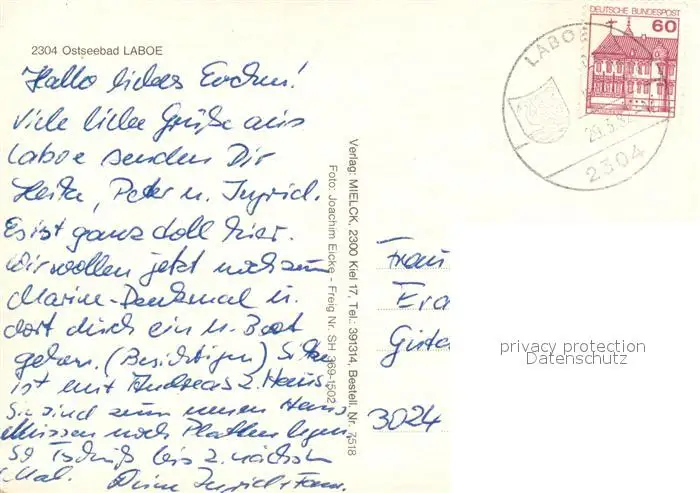 2304 Ostseebad LABOE
Hallo liebes
Viele liebe Grüße aus
Laboe senden Dir
Heike, Peter u. Ingrid.
Es ist ganz doll hier.
Wir wollen jetzt noch zum
Marine-Denkmal u.
dort durch ein U. Boot
gehen. (Besichtigen)
ist mit Andreas z. Haus.
Sie sind zum neuen Haus
Müssen noch Platten legen.
So Tschüß bis z. nächsten
Mal. Deine Ingrid + Fam.
Verlag: MIELCK, 2300 Kiel 17, Tel.: 391314, Bestell. Nr. 7518
Foto: Joachim Eicke - Freig Nr. SH 369-1502
DEUTSCHE BUNDESPOST
60
LABOE
2304
Frau
Gust
3024
privacy protection
Datenschutz